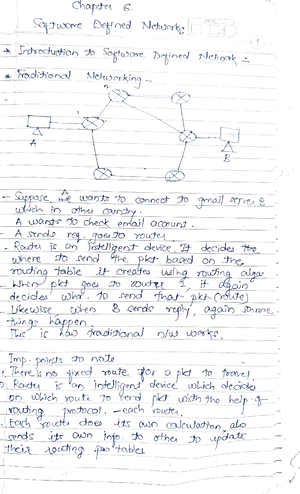 Chapter 6.
Software Defined Network:
* Introduction to Software Defined Network :-
* Traditional Networking -
2
1
A
B
- Suppose A wants to connect to gmail server B
which in other country.
A wants to check email account.
- A sends req. goes to router
- Router is an intelligent device. It decides the
where to send the pkt based on the
routing table it creates using routing algo.
- When pkt goes to router 2, it again
decides whr. to send that pkt (route)
Likewise when B sends reply, again same
things happen.
This is how traditional n/w works.
Imp. points to note
1. There is no fixed route for a pkt to travel.
2. Router is an intelligent device which decides
on which route to send pkt with the help of
routing protocol. - each router.
. Each router does its own calculation, also
sends its own info. to other to update
their routing tables